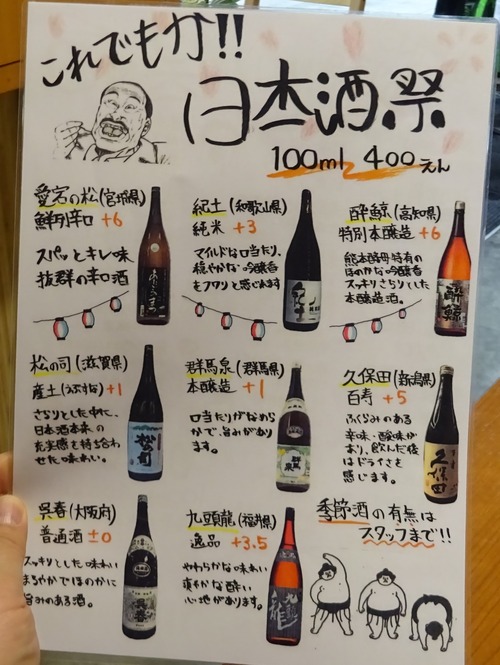 これでもか!!
日本酒祭
100ml 400えん
愛宕の松(宮城県)
鮮烈辛口 +6
スパッとキレ味
抜群の辛口酒
紀土(和歌山県)
純米 +3
マイルドな口当たり、
穏やかな吟醸香
をフワリと感じれます
酔鯨(高知県)
特別本醸造 +6
熊本酵母特有の
ほのかな吟醸香
スッキリさらりとした
本醸造酒。
松の司(滋賀県)
産土(うぶすな) +1
さらりとした中に、
日本酒本来の
充実感を持ち合わ
せた味わい。
松の司
群馬泉(群馬県)
本醸造 +1
口当たりがなめら
かで、旨みがあり
ます。
群馬泉
久保田(新潟県)
百寿 +5
ふくらみのある
辛味・酸味が
あり、飲んだ後
はドライさを
感じます。
久保田
呉春(大阪府)
普通酒 ±0
スッキリとした味わい
まろやかでほのかに
旨みのある酒。
呉春
九頭龍(福井県)
逸品 +3.5
やわらかな味わい
爽やかな酔い
心地があります。
九頭龍
季節酒の有無は
スタッフまで!!
酔鯨
紀土